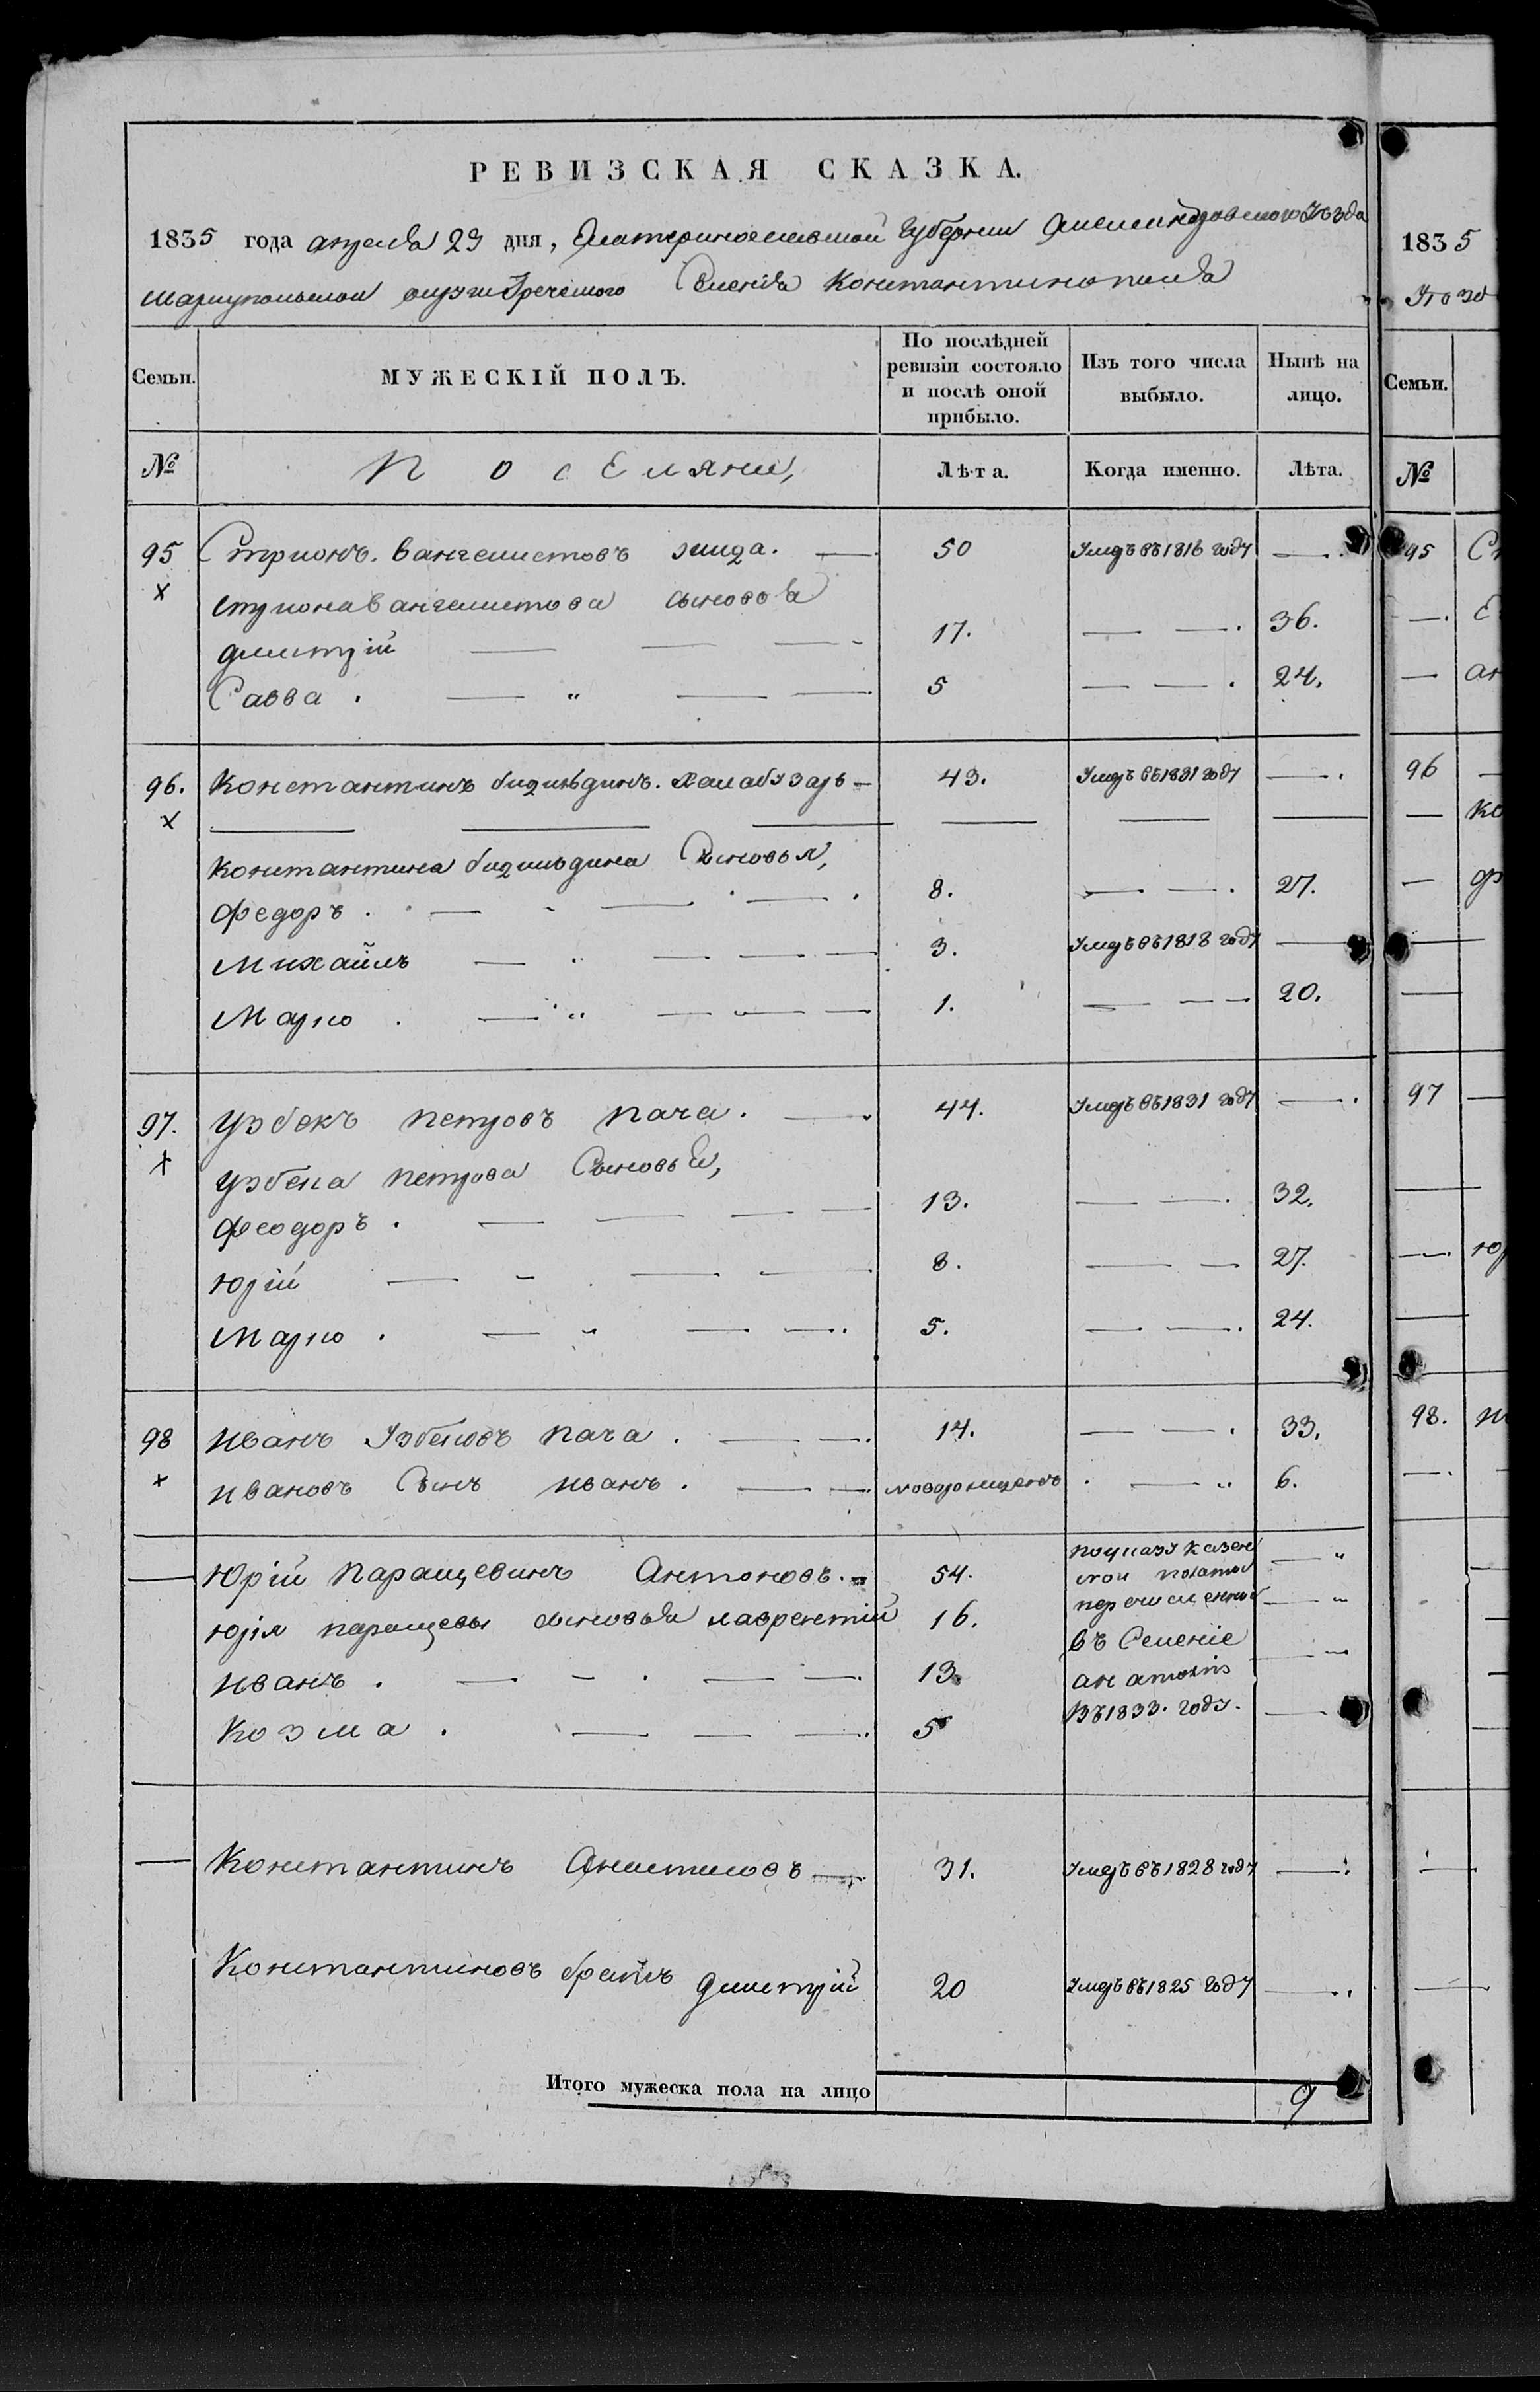 РЕВИЗСКАЯ СКАЗКА.
1835 года апреля 29 дня, Екатеринославской Губернии Александровского Уезда
Мариупольскои округи Греческого Селения Константинополя
Семьи. МУЖЕСКІЙ ПОЛЪ. По послѣдней ревизіи состояло и послѣ оной прибыло. Изъ того числа выбыло. Нынѣ на лицо.
№ Поселяни, Лѣта. Когда именно. Лѣта.
95 Стрионъ Вангелистовъ 50 Умеръ въ 1816 году
х Стриона Вангелистова сыновья
Дмитрій 17. 36.
Савва. 5 24.
96. Константинъ 43. Умеръ въ 1831 году
х
Константина сыновья,
Федоръ. 8. 27.
Михайлъ 3. Умеръ въ 1818 году
Марко. 1. 20.
97. Узбекъ Петровъ Пача. 44. Умеръ въ 1831 году
х Узбека Петрова Сыновья,
Феодоръ. 13. 32.
Юрій 8. 27.
Марко. 5. 24.
98 Иванъ Узбековъ Пача. 14. 33.
х Ивановъ Сынъ Иванъ. новорожденъ 6.
Юрій Паращевинъ Антоновъ. 54. по указу казен
ной палаты
Юрія Паращевы сыновья Лаврентій 16. перечислены
въ Селеніе
Иванъ. 13.
Козма. 5 въ 1833. году.
Константинъ 31. Умеръ въ 1828 году
Константиновъ братъ Дмитрій 20 Умеръ въ 1825 году
Итого мужеска пола на лицо 9
1835
Семьи.
№
95
96
97
98.